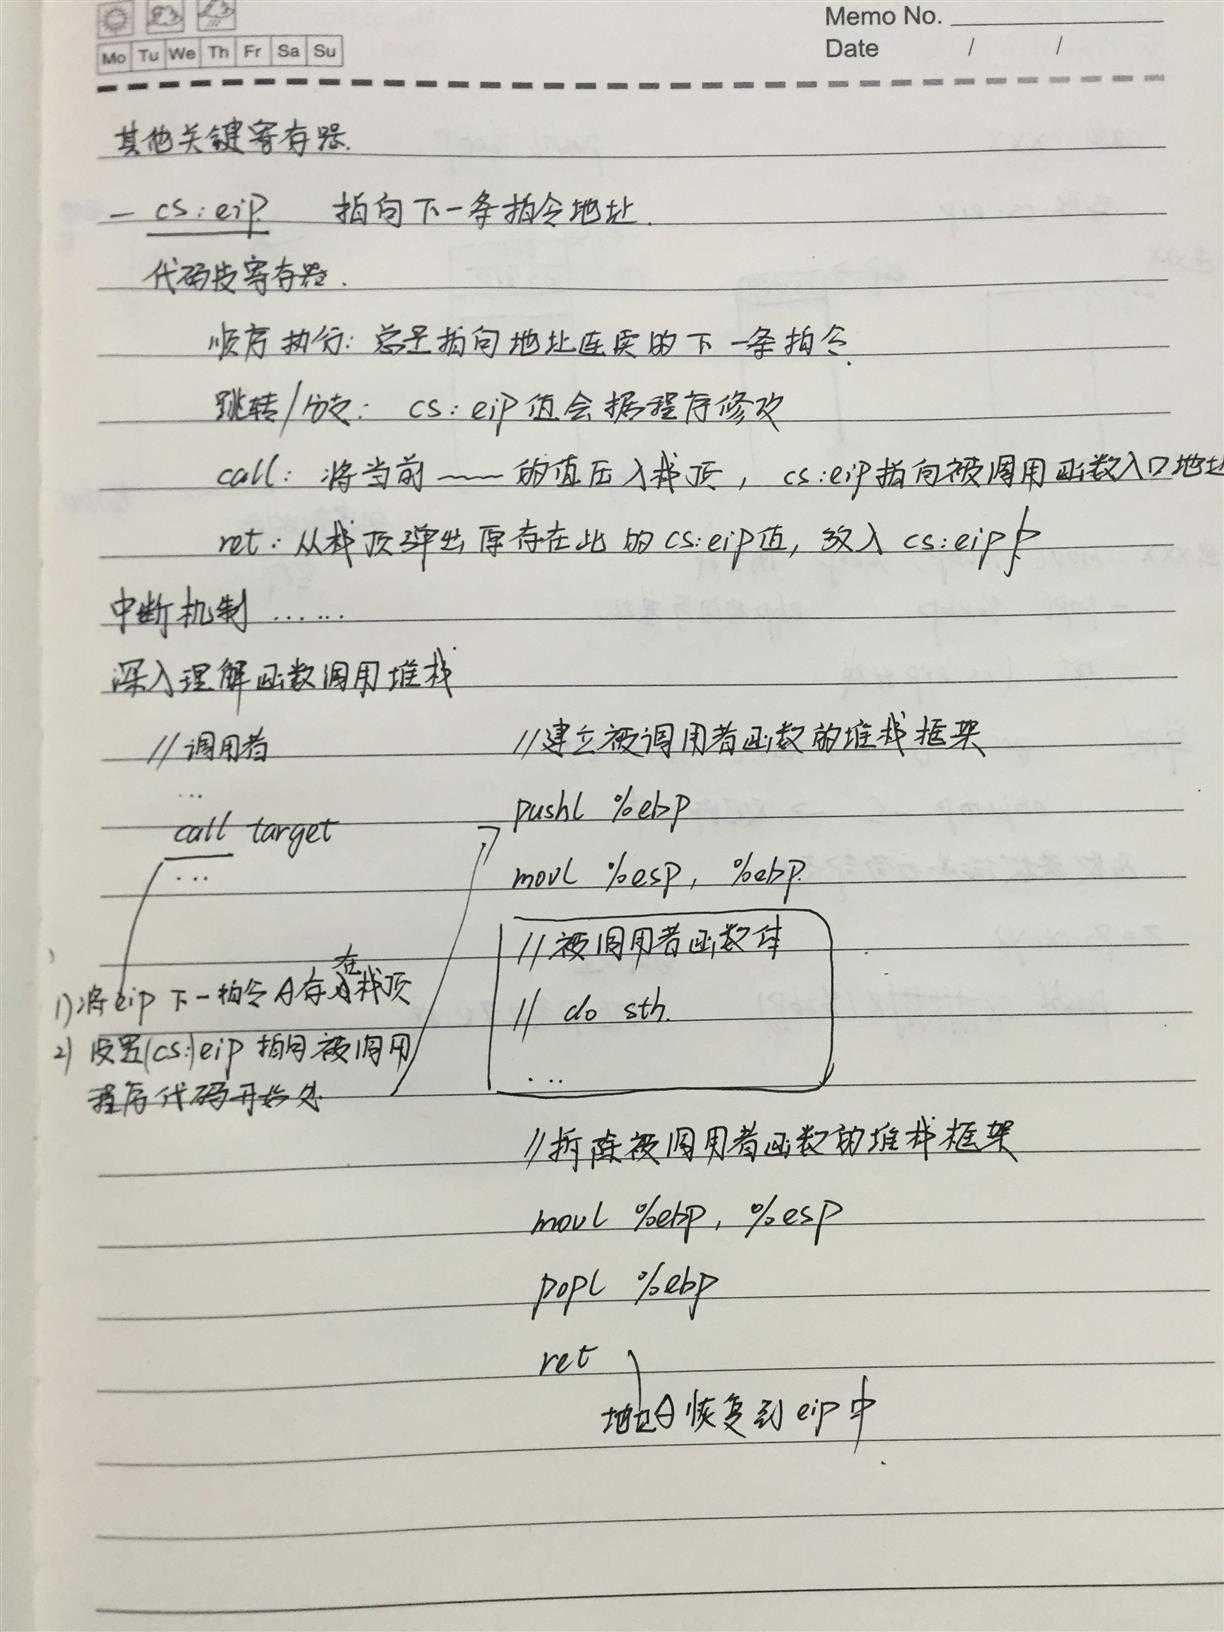 Memo No.
Mo Tu We Th Fr Sa Su
Date / /
其他关键寄存器.
— cs:eip. 指向下一条指令地址.
代码段寄存器.
顺序执行: 总是指向地址连续的下一条指令.
跳转/分支: cs:eip值会据程序修改
call: 将当前——的值压入栈顶, cs:eip指向被调用函数入口地址
ret: 从栈顶弹出原存在此的cs:eip值, 放入cs:eip中
中断机制 ……
深入理解函数调用堆栈
//调用者
...
call target
...
1)将eip下一指令A存在栈顶
2) 设置(cs:)eip指向被调用
程序代码开始处
//建立被调用者函数的堆栈框架
pushl %ebp
movl %esp, %ebp.
//被调用者函数体
// do sth.
...
//拆除被调用者函数的堆栈框架
movl %ebp, %esp
popl %ebp
ret
地址A恢复到eip中.